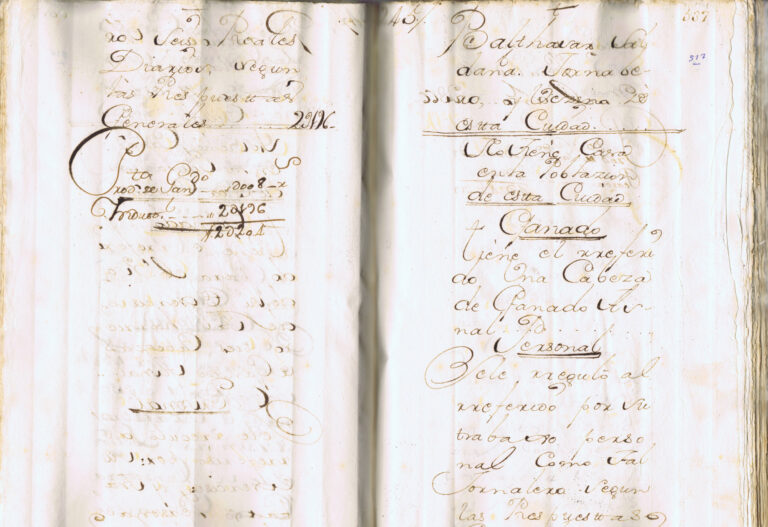 ros Seis Reales
Diarios, segun
las Respuestas
Generales
Prodto de Gando
Yndustl
437
Balthasar Sal
daña. Jornale
ro, y Vezino de
esta Ciudad.
No tiene Casa
en la Poblazion
de esta Ciudad
Ganado
tiene el rreferi
do Una Cabeza
de Ganado As
nal
Personal
Sele rreguló al
rreferido por su
trabaxo perso
nal Como tal
Jornalero segun
las Respuestas